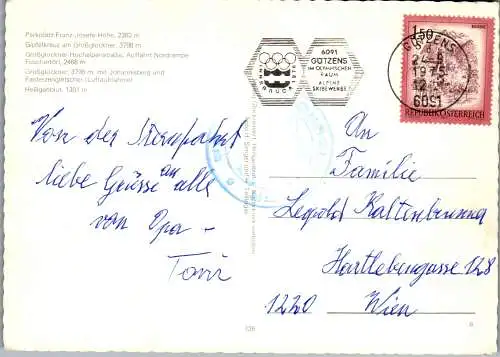 Parkplatz Franz-Josefs-Höhe, 2362 m
Gipfelkreuz am Großglockner, 3798 m
Großglockner Hochalpenstraße, Auffahrt Nordrampe
Edelweißspitze
Großglockner, 3798 m, mit Johannisberg und
Pasterzengletscher (Luftaufnahme)
Heiligenblut, 1301 m
INNSBRUCK
6091
GÖTZENS
IM OLYMPISCHEN
RAUM
ALPINE
SKIBEWERBE
GÖTZENS
1975
6091
150
REPUBLIK ÖSTERREICH
Von der Sternfahrt
liebe Grüsse an alle
von Opa -
Toni
An
Familie
Leopold Kaltenbrunner
Hartlebengasse 128
1220 Wien